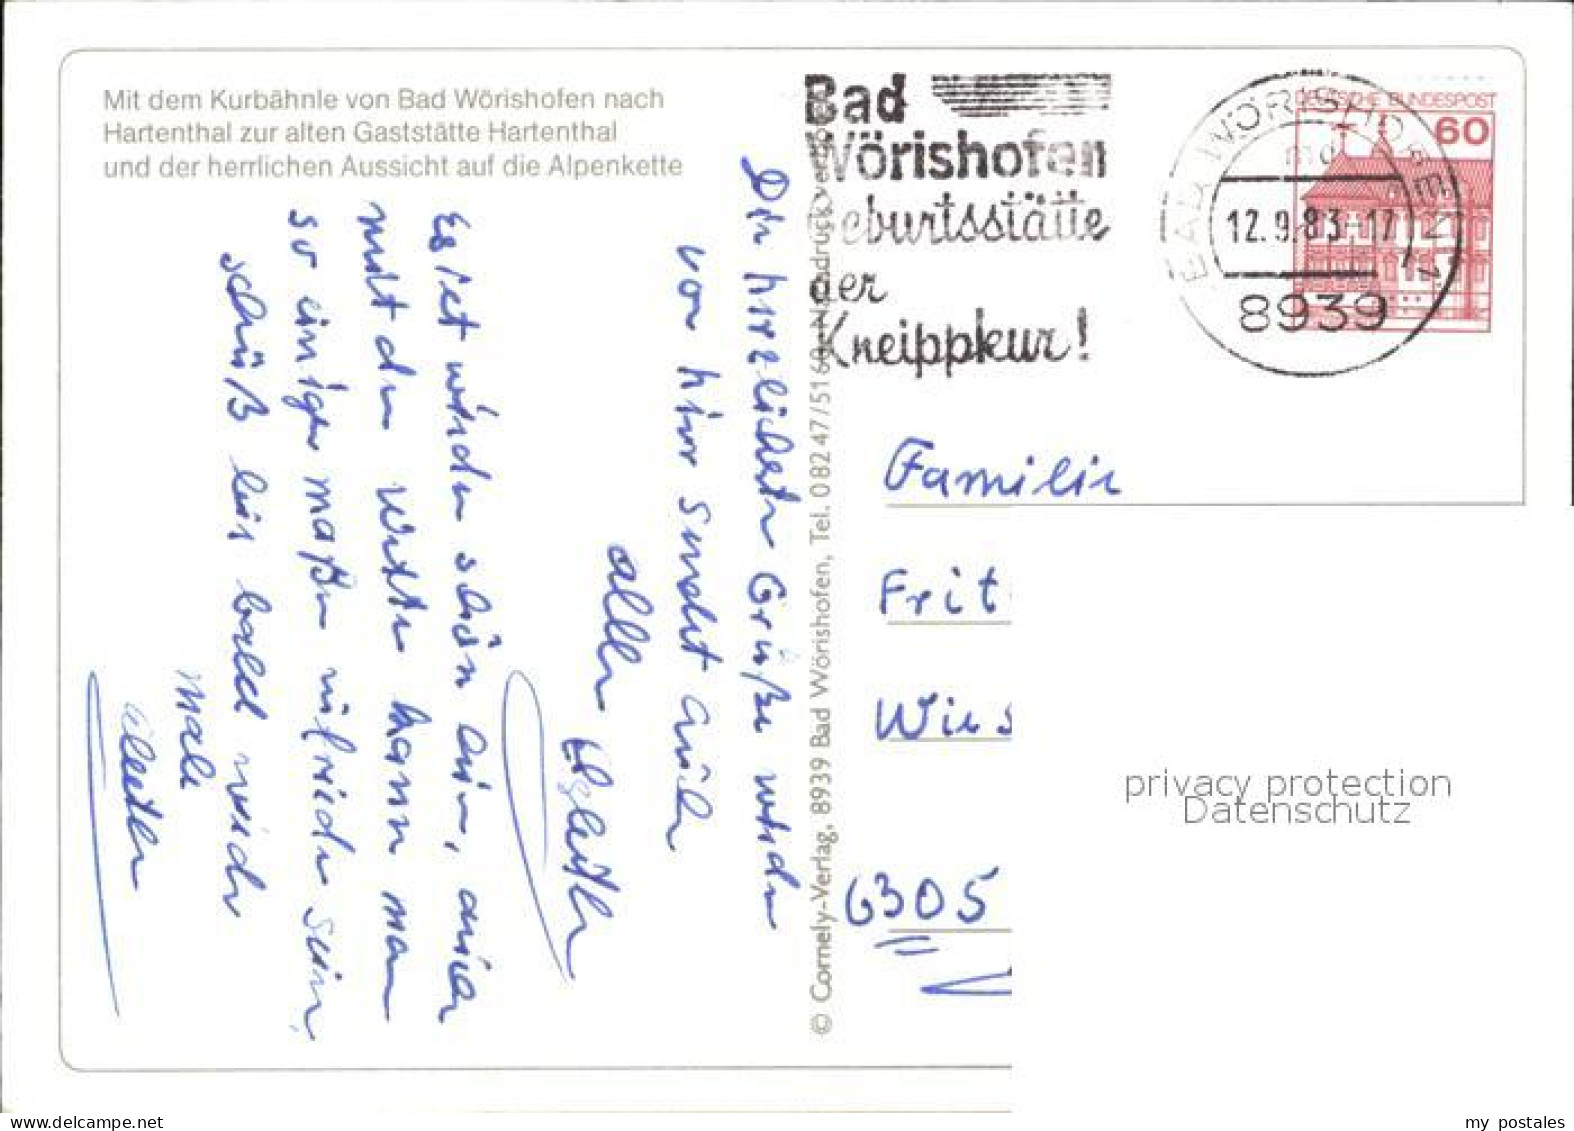 Mit dem Kurbähnle von Bad Wörishofen nach
Hartenthal zur alten Gaststätte Hartenthal
und der herrlichen Aussicht auf die Alpenkette
Bad
Wörishofen
Geburtsstätte
der
Kneippkur!
BAD WÖRISHOFEN 1
12.9.83-17
8939
DEUTSCHE BUNDESPOST
60
Die herzlichsten Grüße
von hier sendet auch
allen
Es ist wieder schön hier, auch
mit dem Wetter kann man
so einigermaßen zufrieden sein,
Tschüß bis bald wieder
mal
© Cornely-Verlag, 8939 Bad Wörishofen, Tel. 0 82 47/51 60 Nachdruck verboten
Familie
Frit
Wies
6305
privacy protection
Datenschutz
delcampe.net
my postales